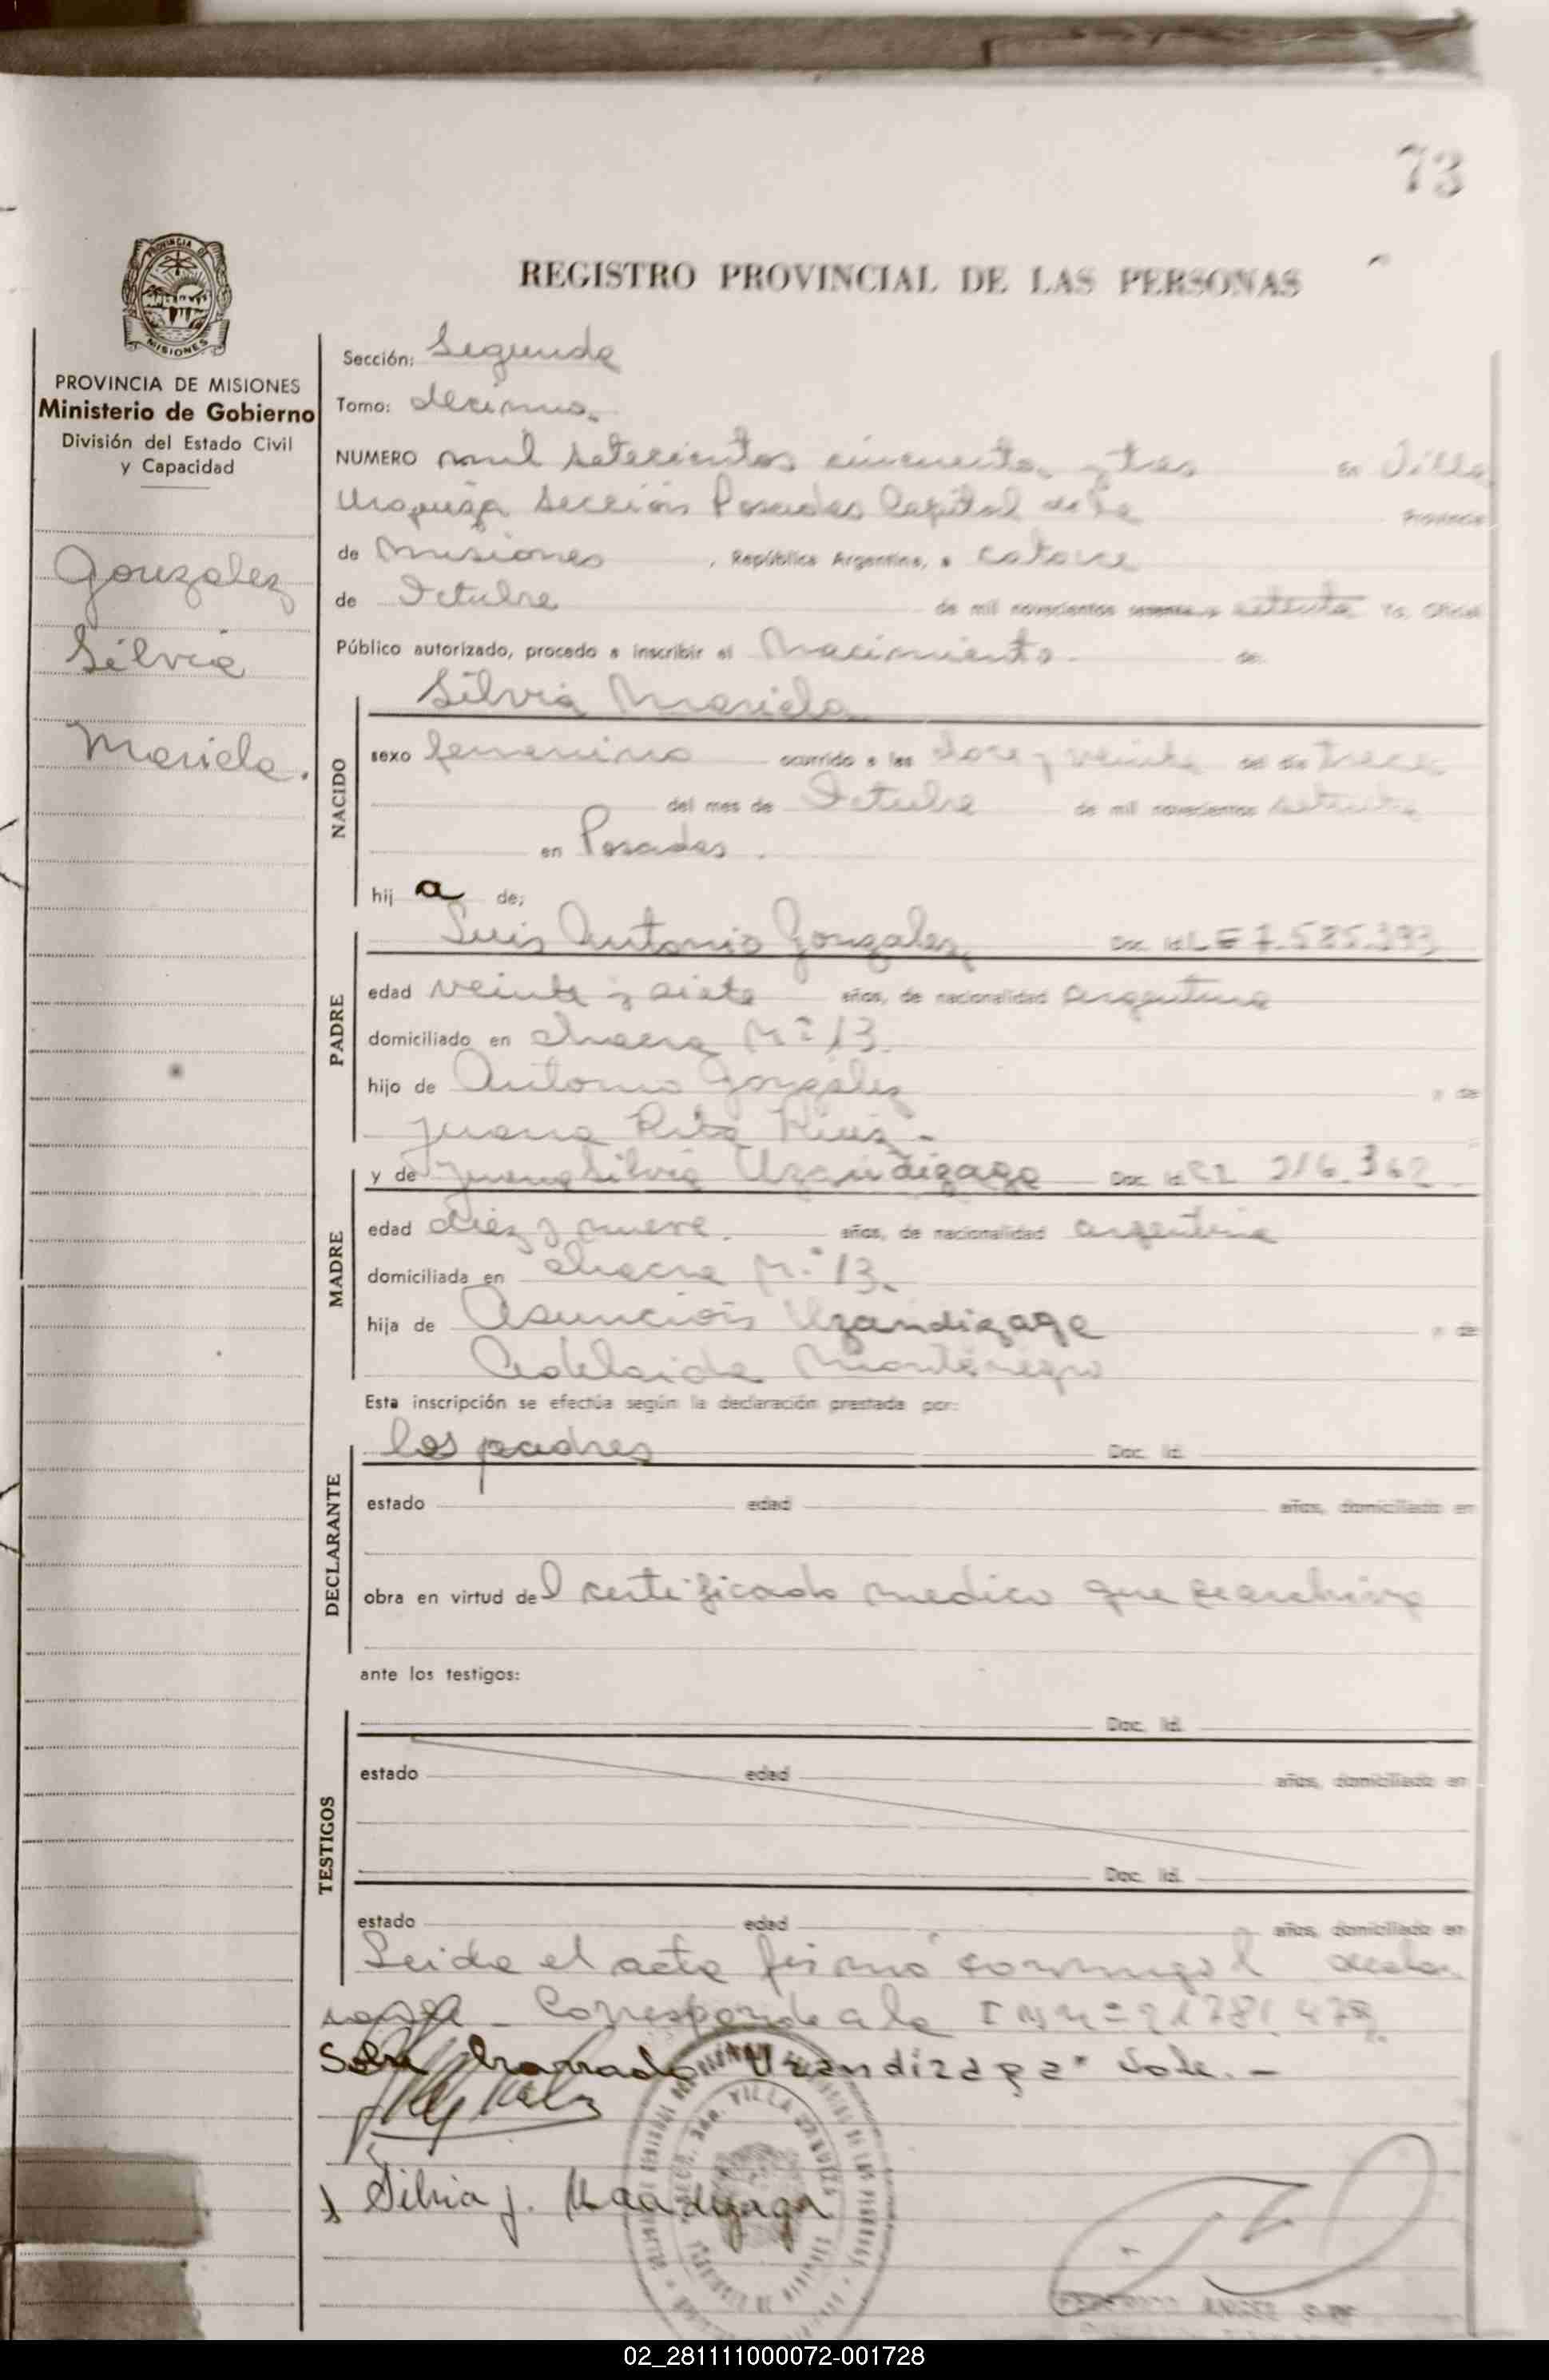 73
PROVINCIA DE MISIONES
REGISTRO PROVINCIAL DE LAS PERSONAS
PROVINCIA DE MISIONES
Ministerio de Gobierno
División del Estado Civil
y Capacidad
Gonzalez
Silvia
Mariela.
Sección: Segunda
Tomo: decimo.
NUMERO mil setecientos cincuenta y tres en Villa
Urquiza Sección Posadas Capital de la Provincia
de Misiones, República Argentina, a catorce
de Octubre de mil novecientos setenta Yo, Oficial
Público autorizado, procedo a inscribir el Nacimiento de:
NACIDO
Silvia Mariela
sexo femenino ocurrido a las doce y veinte del día trece
del mes de Octubre de mil novecientos setenta
en Posadas.
hij a de:
PADRE
Luis Antonio Gonzalez, Doc. Id. L E 7.585.393
edad veinte y siete años, de nacionalidad argentina
domiciliado en chacra Nº 13.
hijo de Antonio González y de
Juana Rita
MADRE
y de Juana Silvia Uzandizaga Doc. Id. 216.362
edad diez y nueve. años, de nacionalidad argentina
domiciliada en chacra N.º 13.
hija de Asunción Uzandizaga y de
Adelaida Montenegro
Esta inscripción se efectúa según la declaración prestada por:
DECLARANTE
los padres Doc. Id.
estado edad años, domiciliado en
obra en virtud del certificado medico que se archiva
ante los testigos:
TESTIGOS
Doc. Id.
estado edad años, domiciliado en
Doc. Id.
estado edad años, domiciliado en
Leida el acta firmó conmigo
Corresponde a la
Sobre borrado Uzandizaga" Vale. -
Silvia J.
VILLA URQUIZA
FEDERICO ANGEL
02_281111000072-001728